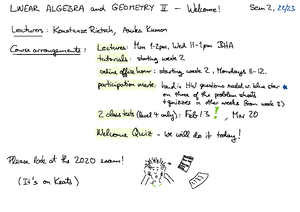 LINEAR ALGEBRA and GEOMETRY II - Welcome!
Sem 2, 22/23
Lectures: Konstanze Rietsch,
Course arrangements: Lectures: Mon 1-2pm, Wed 11-1pm BHA
tutorials: starting week 2
online office hour: starting week 2, Mondays 11-12.
participation mark: hand in HW questions marked w. blue star
on three of the problem sheets
+ quizzes in other weeks (from week 3)
2 class tests (Level 4 only): Feb 13!, Mar 20
Welcome Quiz - we will do it today!
Please look at the 2020 exam!
(It's on Keats)